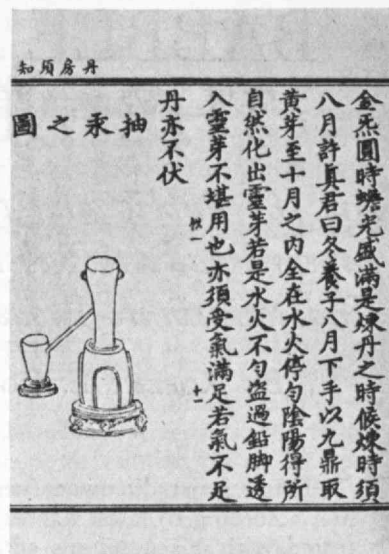 丹房須知
金炁圓時蟾光盛滿是煉丹之時候煉時須
八月許真君曰冬養子八月下手以九鼎取
黄芽至十月之内全在水火停勻陰陽得所
自然化出靈芽若是水火不勻盗過鉛脚透
入靈芽不堪用也亦須受氣滿足若氣不足
十一
丹亦不伏
抽汞之圖